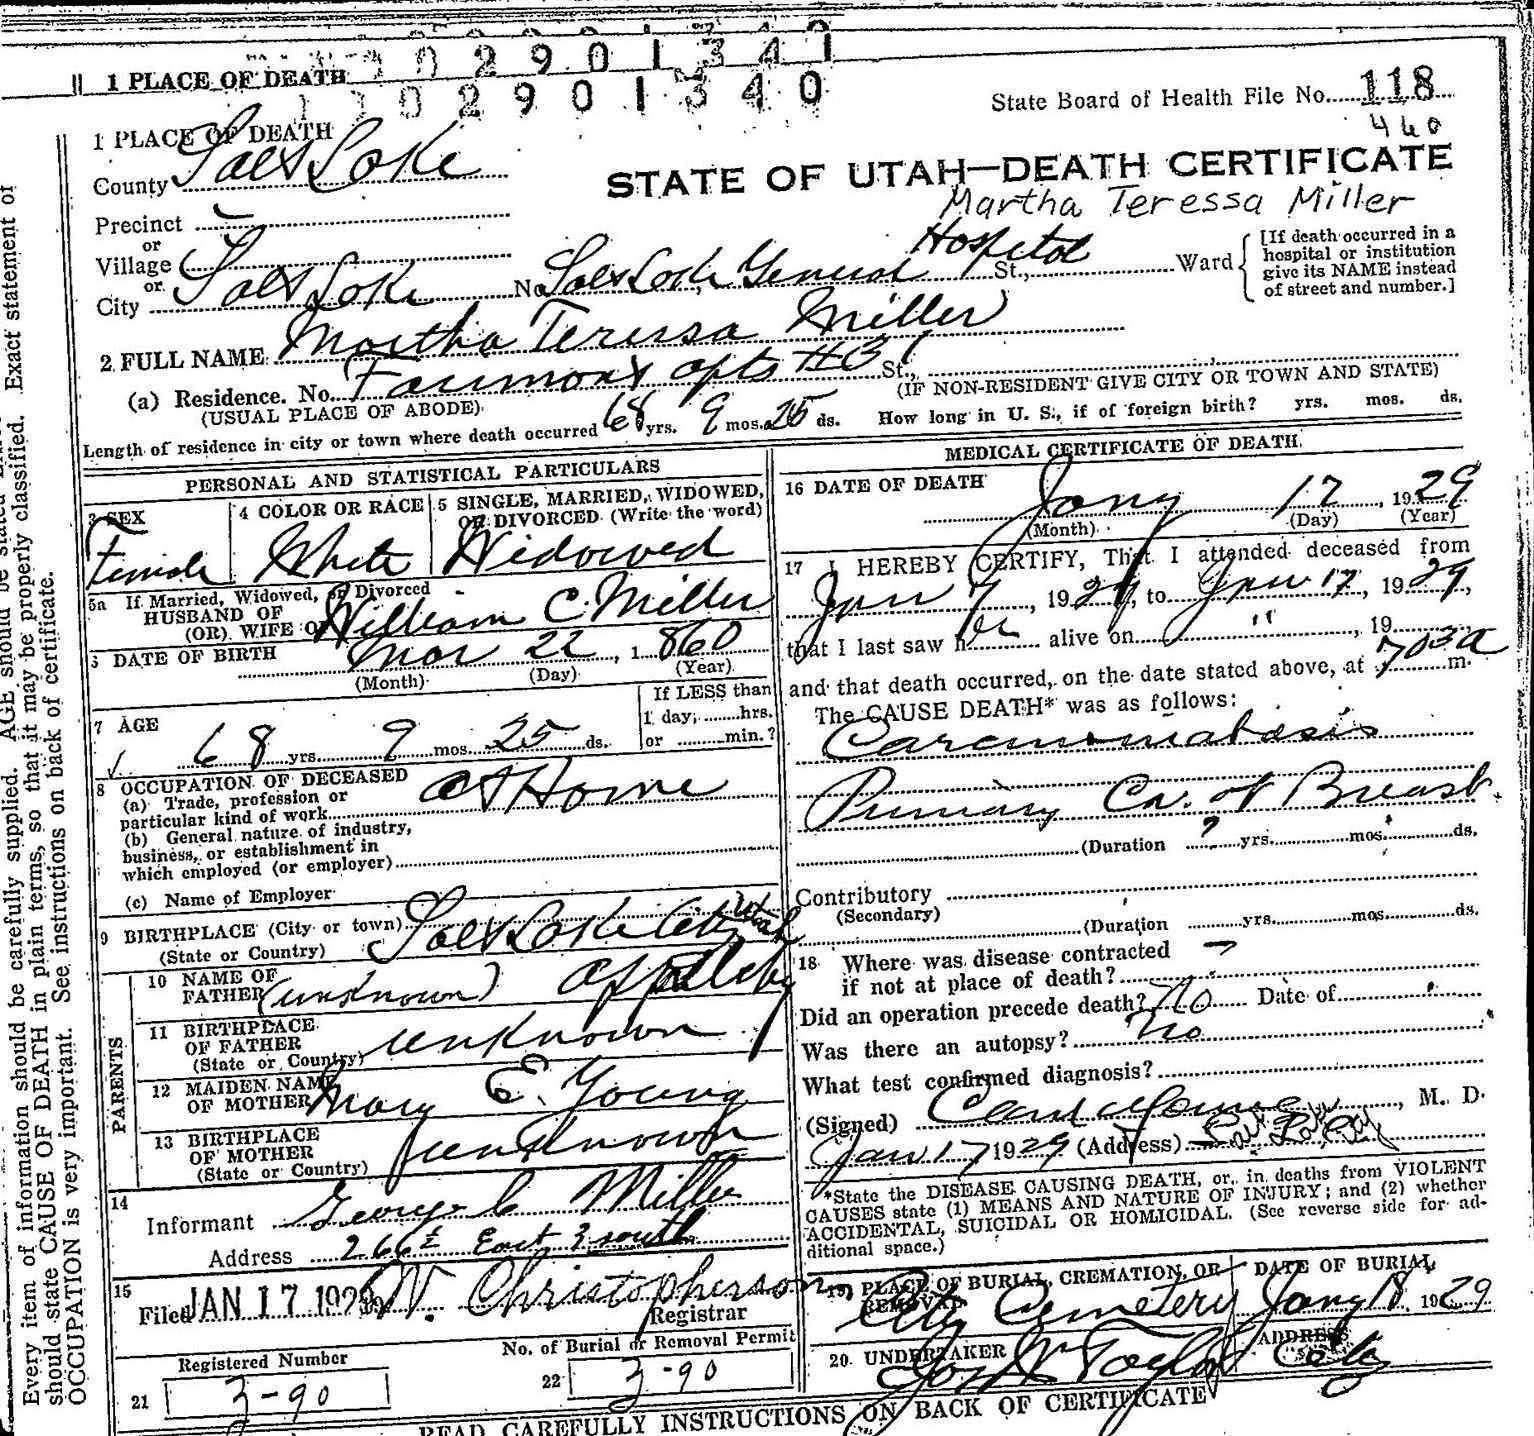 02901341
1 PLACE OF DEATH
1102901340
State Board of Health File No. 118
460
1 PLACE OF DEATH
County Salt Lake
STATE OF UTAH—DEATH CERTIFICATE
Martha Teressa Miller
Precinct
or
Village
or
City Salt Lake No. Salt Lake General Hospital St., Ward
[If death occurred in a
hospital or institution
give its NAME instead
of street and number.]
2 FULL NAME Martha Teressa Miller
(a) Residence. No. Fairmont apts #31 St.,
(USUAL PLACE OF ABODE) (IF NON-RESIDENT GIVE CITY OR TOWN AND STATE)
Length of residence in city or town where death occurred 68 yrs. 9 mos. 25 ds. How long in U. S., if of foreign birth? yrs. mos. ds.
PERSONAL AND STATISTICAL PARTICULARS
3 SEX
Female
4 COLOR OR RACE
White
5 SINGLE, MARRIED, WIDOWED,
OR DIVORCED (Write the word)
Widowed
5a If Married, Widowed, or Divorced
HUSBAND OF
(OR) WIFE OF William C. Miller
6 DATE OF BIRTH Mar 22, 1860
(Month) (Day) (Year)
7 AGE
68 yrs. 9 mos. 25 ds.
If LESS than
1 day, hrs.
or min.?
8 OCCUPATION OF DECEASED
(a) Trade, profession or
particular kind of work At Home
(b) General nature of industry,
business, or establishment in
which employed (or employer)
(c) Name of Employer
9 BIRTHPLACE (City or town) Salt Lake City Utah
(State or Country)
PARENTS
10 NAME OF
FATHER (unknown) Appleby
11 BIRTHPLACE
OF FATHER
(State or Country) unknown
12 MAIDEN NAME
OF MOTHER Mary E. Young
13 BIRTHPLACE
OF MOTHER
(State or Country) unknown
14
Informant George C Miller
Address 266½ East 3 south
15
Filed JAN 17 1929 W. Christopherson
Registrar
Registered Number
21 3-90
No. of Burial or Removal Permit
22 3-90
MEDICAL CERTIFICATE OF DEATH
16 DATE OF DEATH Jany 17, 1929
(Month) (Day) (Year)
17 I HEREBY CERTIFY, That I attended deceased from
Jan 7, 1929, to Jan 17, 1929,
that I last saw her alive on " , 19
and that death occurred, on the date stated above, at 703a m.
The CAUSE DEATH* was as follows:
Carcinomatosis
Primary Ca. of Breast
(Duration ? yrs. mos. ds.
Contributory
(Secondary)
(Duration yrs. mos. ds.
18 Where was disease contracted
if not at place of death? ?
Did an operation precede death? No Date of
Was there an autopsy? No
What test confirmed diagnosis?
(Signed) M. D.
Jan 17 1929 (Address) Salt Lake City
*State the DISEASE CAUSING DEATH, or, in deaths from VIOLENT
CAUSES state (1) MEANS AND NATURE OF INJURY; and (2) whether
ACCIDENTAL, SUICIDAL OR HOMICIDAL. (See reverse side for ad-
ditional space.)
19 PLACE OF BURIAL, CREMATION, OR
REMOVAL
City Cemetery
DATE OF BURIAL
Jany 18, 1929
20 UNDERTAKER
Jos Wm Taylor
ADDRESS
City
READ CAREFULLY INSTRUCTIONS ON BACK OF CERTIFICATE
Every item of information should be carefully supplied. AGE should be stated Exact statement of
should state CAUSE OF DEATH in plain terms, so that it may be properly classified.
OCCUPATION is very important. See instructions on back of certificate.